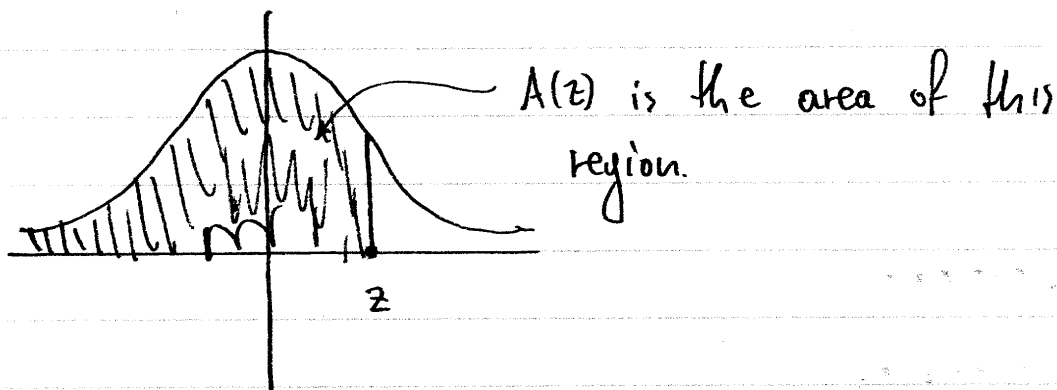 A(z) is the area of this
region.
z